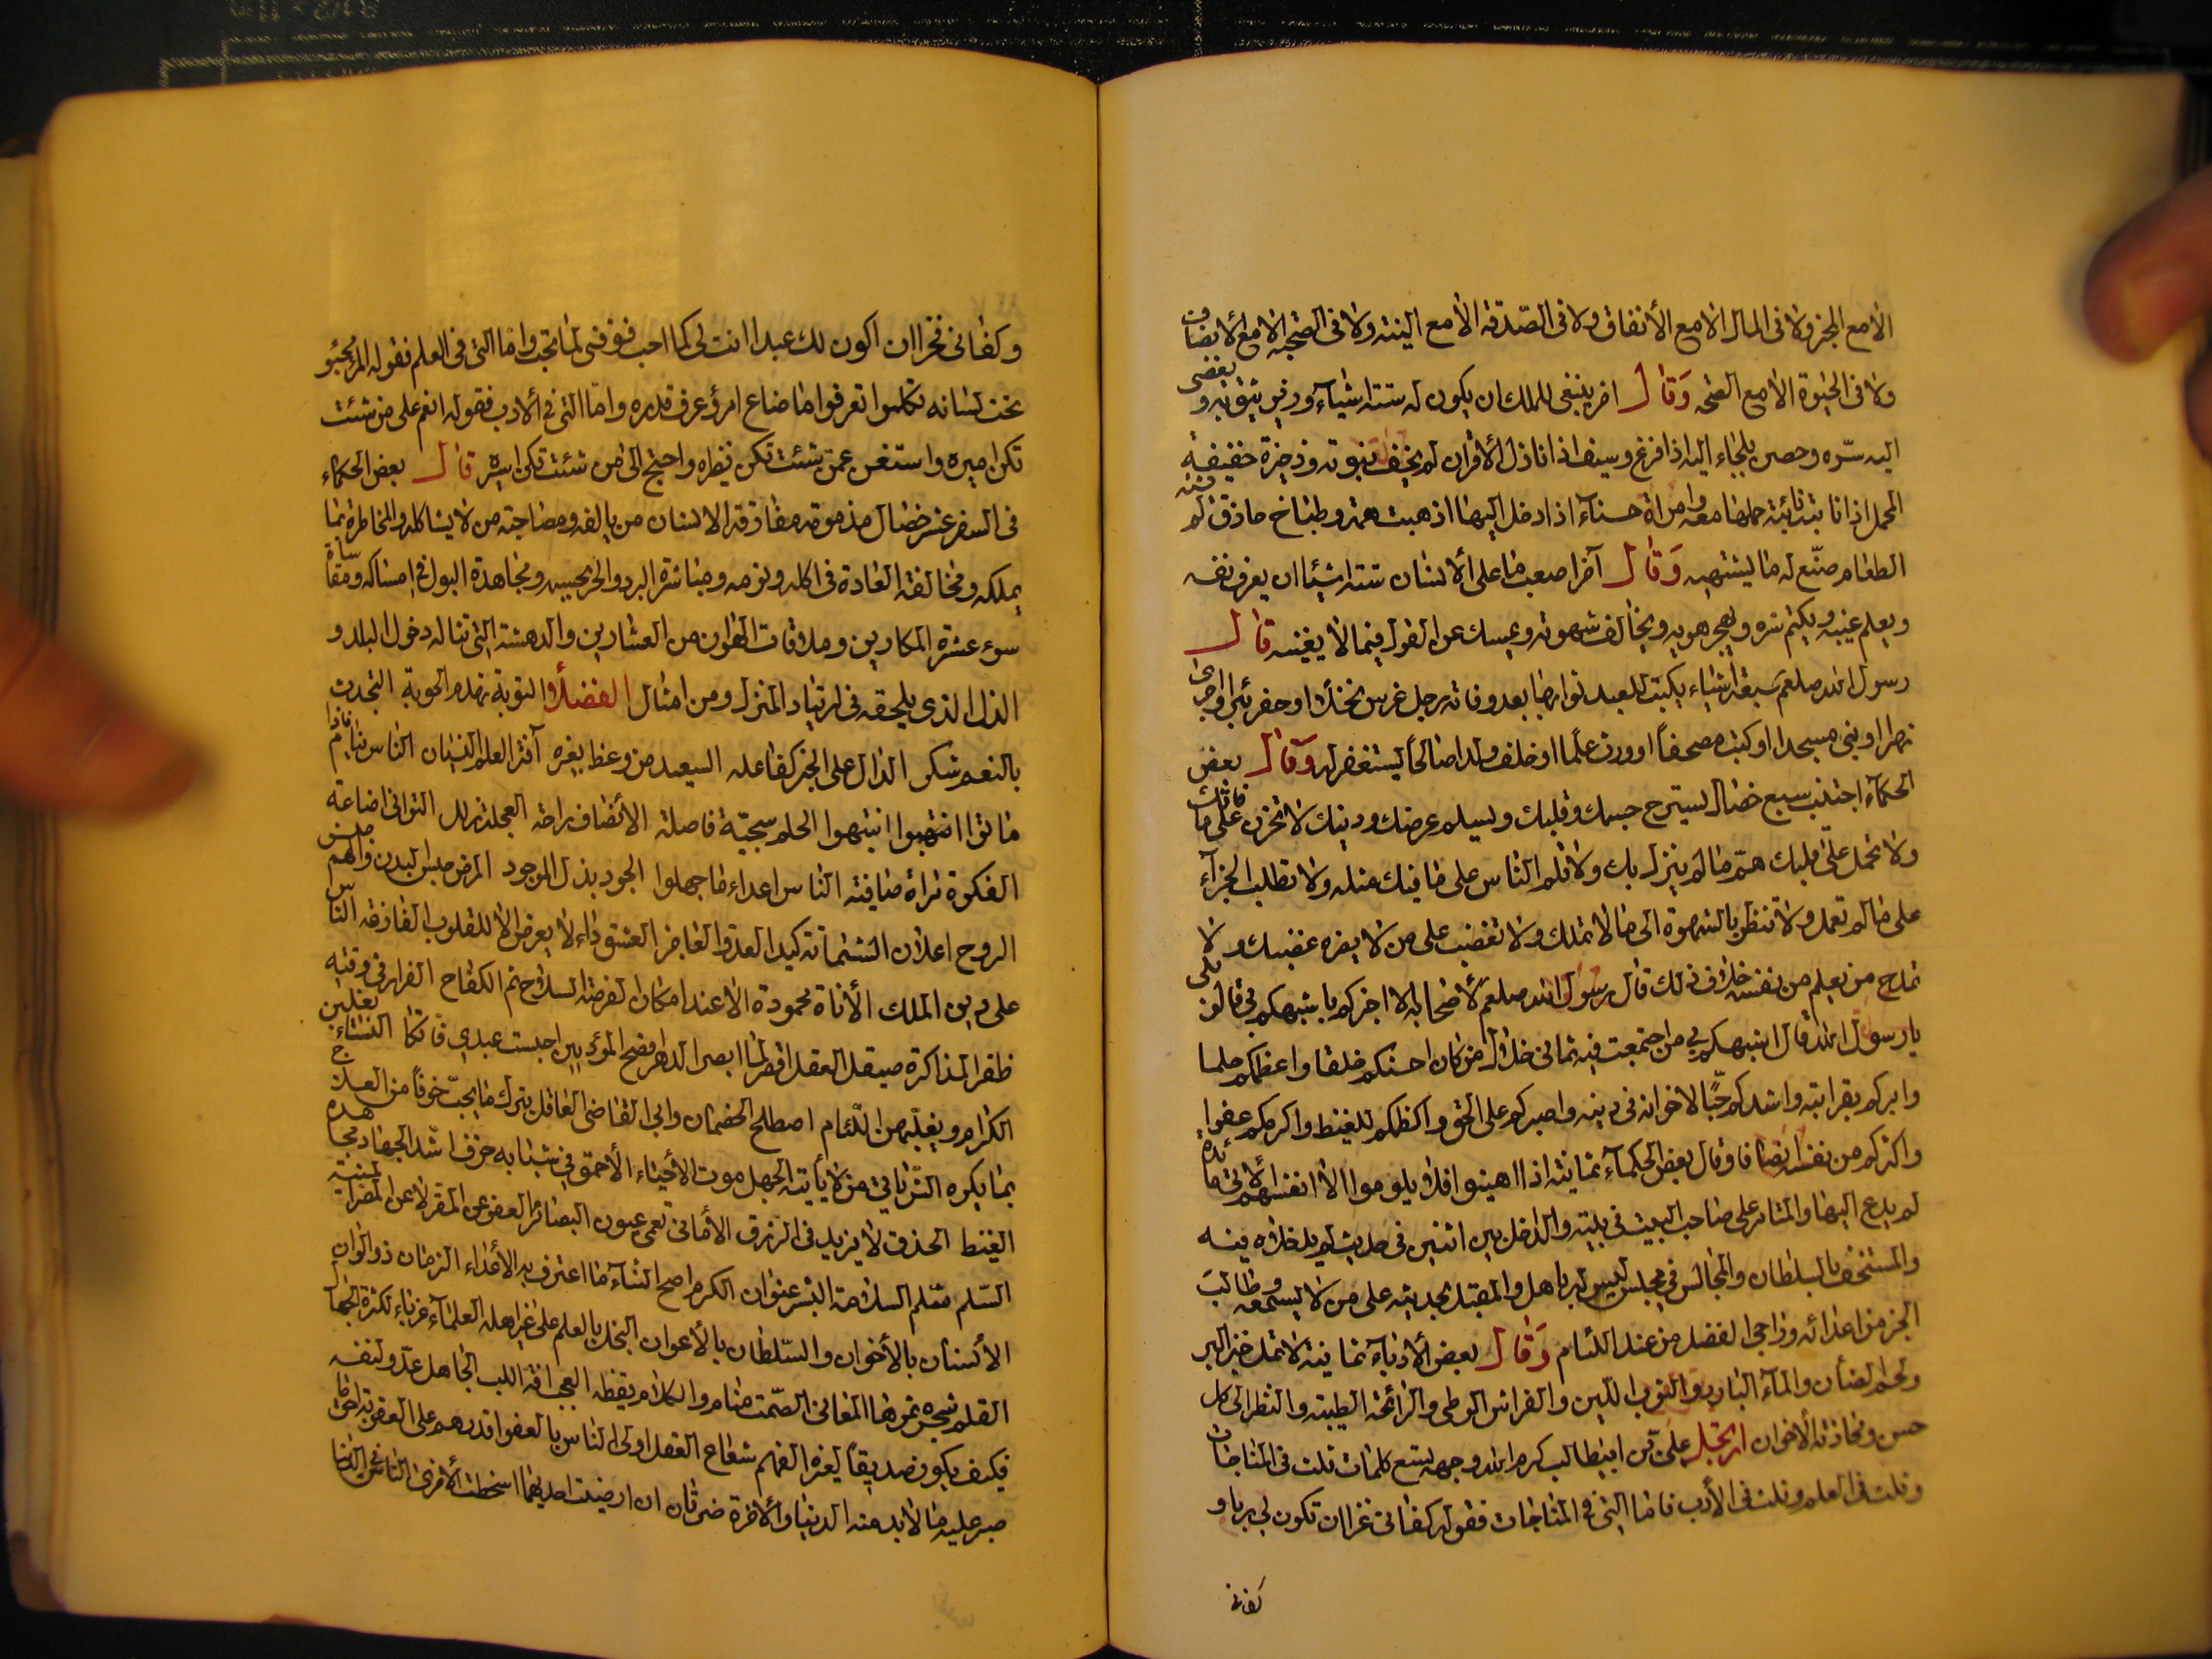 الا مع المجز ولا فى المال الا مع الأنفاق ولا فى الصّدقة الا مع النية ولا فى الصحبة الا مع الأنصاف
ولا فى الحيوة الا مع الصحه وَقال اخر ينبغى للملك ان يكون له ستة اشيآء وزير يثق به و يفضى
اليه سرّه وحصن يلجاء اليه اذا فزغ وسيف اذا نازل الأقران لم يخف نبوته وذخيرة خفيفة
المحمل اذا نابته نائبة حملها معه وامراة حسنآء اذا دخل اليها اذهبت همّه وطباخ حاذق لم
الطعام صنّع له ما يشتهيه وَقال آخر اصعب ما على الأنسان ستة اشيئا ان يعرف نفسه
ويعلم عيبه ويكتم سره ويهجر هويه ويخالف شهوته ويمسك عن القول فيما لا يغنيه قال
رسول الله صلعم سبقة اشياء يكتب للعبد ثوابها بعد وفاته رجل غرس نخلا او حفر بئرا واجرى
نهرا او بنى مسجدا او كتب مصحفاً اوورث علماً او خلف ولدا صالحاً يستغفر له وَقال بعض
الحكمآء اجتنب سبع خصال يستريح جسمك وقلبك ويسلم عرضك ودينك لا تحزن على ما فاتك
ولا تحمل على قلبك همّ ما لم ينزل بك ولا تلم الناس على ما فيك مثله ولا تطلب الجزآء
على ما لم تعمل ولا تنظر بالشهوة الى ما لا تملك ولا تغضب على من لا يضره غضبك ولا
تمدح من يعلم من نفسه خلاف ذلك قال رسول الله صلعم لأصحابه الا اخبركم باشبهكم بى قالوا بلى
يا رسول الله قال اشبهكم بي من اجتمعت فيه ثمانى خلال من كان احسنكم خلقا واعظمكم حلما
وابركم بقرابته واشدكم حبّا لاخوانه فى دينه واصبركم على الحق واكظمكم للغيظ واكرمكم عفوا
واكثركم من نفسه انصافا وقال بعض الحكمآء ثمانية اذا اهينوا فلا يلوموا الا انفسهم الآتى مائدة
لم يدع اليها والمتأمر على صاحب البيت فى بيته والداخل بين اثنين فى حديث لم يدخلاه فيه
والمستخف بالسلطان والجالس فى مجلس ليس له باهل والمقبل بحديثه على من لا يسمعه وطالب
الخير من اعدائه وراجى الفضل من عند اللئام وَقال بعض الأدبآء ثمانية لا تمل خبز البر
ولحم الضأن والمآء البارد والثوب اللين والفراش الوطى والرائحة الطيبة والنظر الى كل
حسن ومحادثة الأخوان ارتجل علىّ بن ابيطالب كرم الله وجهه تسع كلمات ثلث فى المناجات
وثلث فى العلم وثلث فى الأدب فاما التى فى المناجات فقوله كفانى عزا ان تكون لي ربا و
كفانى
وكفانى فخرا ان اكون لك عبدا انت لى كما احب فوفقنى لما تحب واما التى فى العلم فقوله المرء مخبو
تحت لسانه تكلموا تعرفوا ما ضاع امرؤ عرف قدره وامّا التى فى الادب فقوله انعم على من شئت
تكن اميره واستغن عمّن شئت تكن نظيره واحتج الى من شئت تكن اسيره قال بعض الحكماء
فى السفر عشر خصال مذمومة مفارقة الانسان من يالفه ومصاحبة من لا يشاكله والمخاطرة بما
يملكه ومخالفة العادة فى اكله ونومه ومباشرة البرد والحر بجسمه ومجاهدة البول فى امساكه ومقاساة
سوء عشرة المكارين وملاقات الهوان من العشارين والدهشة التى تناله دخول البلد و
الذل الذى يلحقه فى ارتياد المنزل ومن امثال الفضلأ والتوبة تهدم الحوبة التحدث
بالنعم شكر الدال على الخير كفاعله السعيد من وعظ بغيره آفة العلم النسيان الناس نيام فاذا
ماتوا انتبهوا الحلم سجيّة فاصلة الأنصاف راحة العجلة زلل التوانى اضاعة
الفكرة مرأة صافية الناس اعداء ما جهلوا الجود بذل الموجود المرض حبس البدن والهم حبس
الروح اعلان الشماتة كيد العدو العاجز العشق داء لا يعرض الا للقلوب الفارغة الناس
على دين الملك الأناة محمودة الا عند امكان الفرصة السلاح ثم الكفاح الفرار فى وقته
ظفر المذاكرة صيقل العقل افقر لما ابصر الدهر افصح المؤدبين احبست عبدي فاتكا النساء يغلبن
الكرام ويغلبهن اللّئام اصطلح الخصمان وابى القاضى العاقل يترك ما يحبّ خوفاً من العلاج
بما يكره الثريا في من لا يأيته الجهل موت الأحياء الأحمق فى شبابه خرف اشد الجهاد مجاهدة
الغيظ الحذق لا يزيد فى الرزق الأمانى تعمى عيون البصائر العفو عن المقر لا عن المصر المنية
السّلم سُلم السلامة البشر عنوان الكرم اصح الثناء ما اعترف به الأعداء الزمان ذوالوان
الأنسان بالأخوان والسّلطان بالأعوان البخل بالعلم على غير اهله العلمآء غرباء لكثرة الجهال
القلم شجرة ثمرها المعانى الصّمت منام والكلام يقظه العجب افة اللب الجاهل عدّو لنفسه
فكيف يكون صديقاً لغيره الفهم شعاع العقل اولى الناس بالعفو اقدرهم على العقوبة احق ما
صبر عليه ما لا بد منه الدنيا والآخرة ضرّتان ان ارضيت احديهما اسخطت الأخرى الناس فى الدنيا